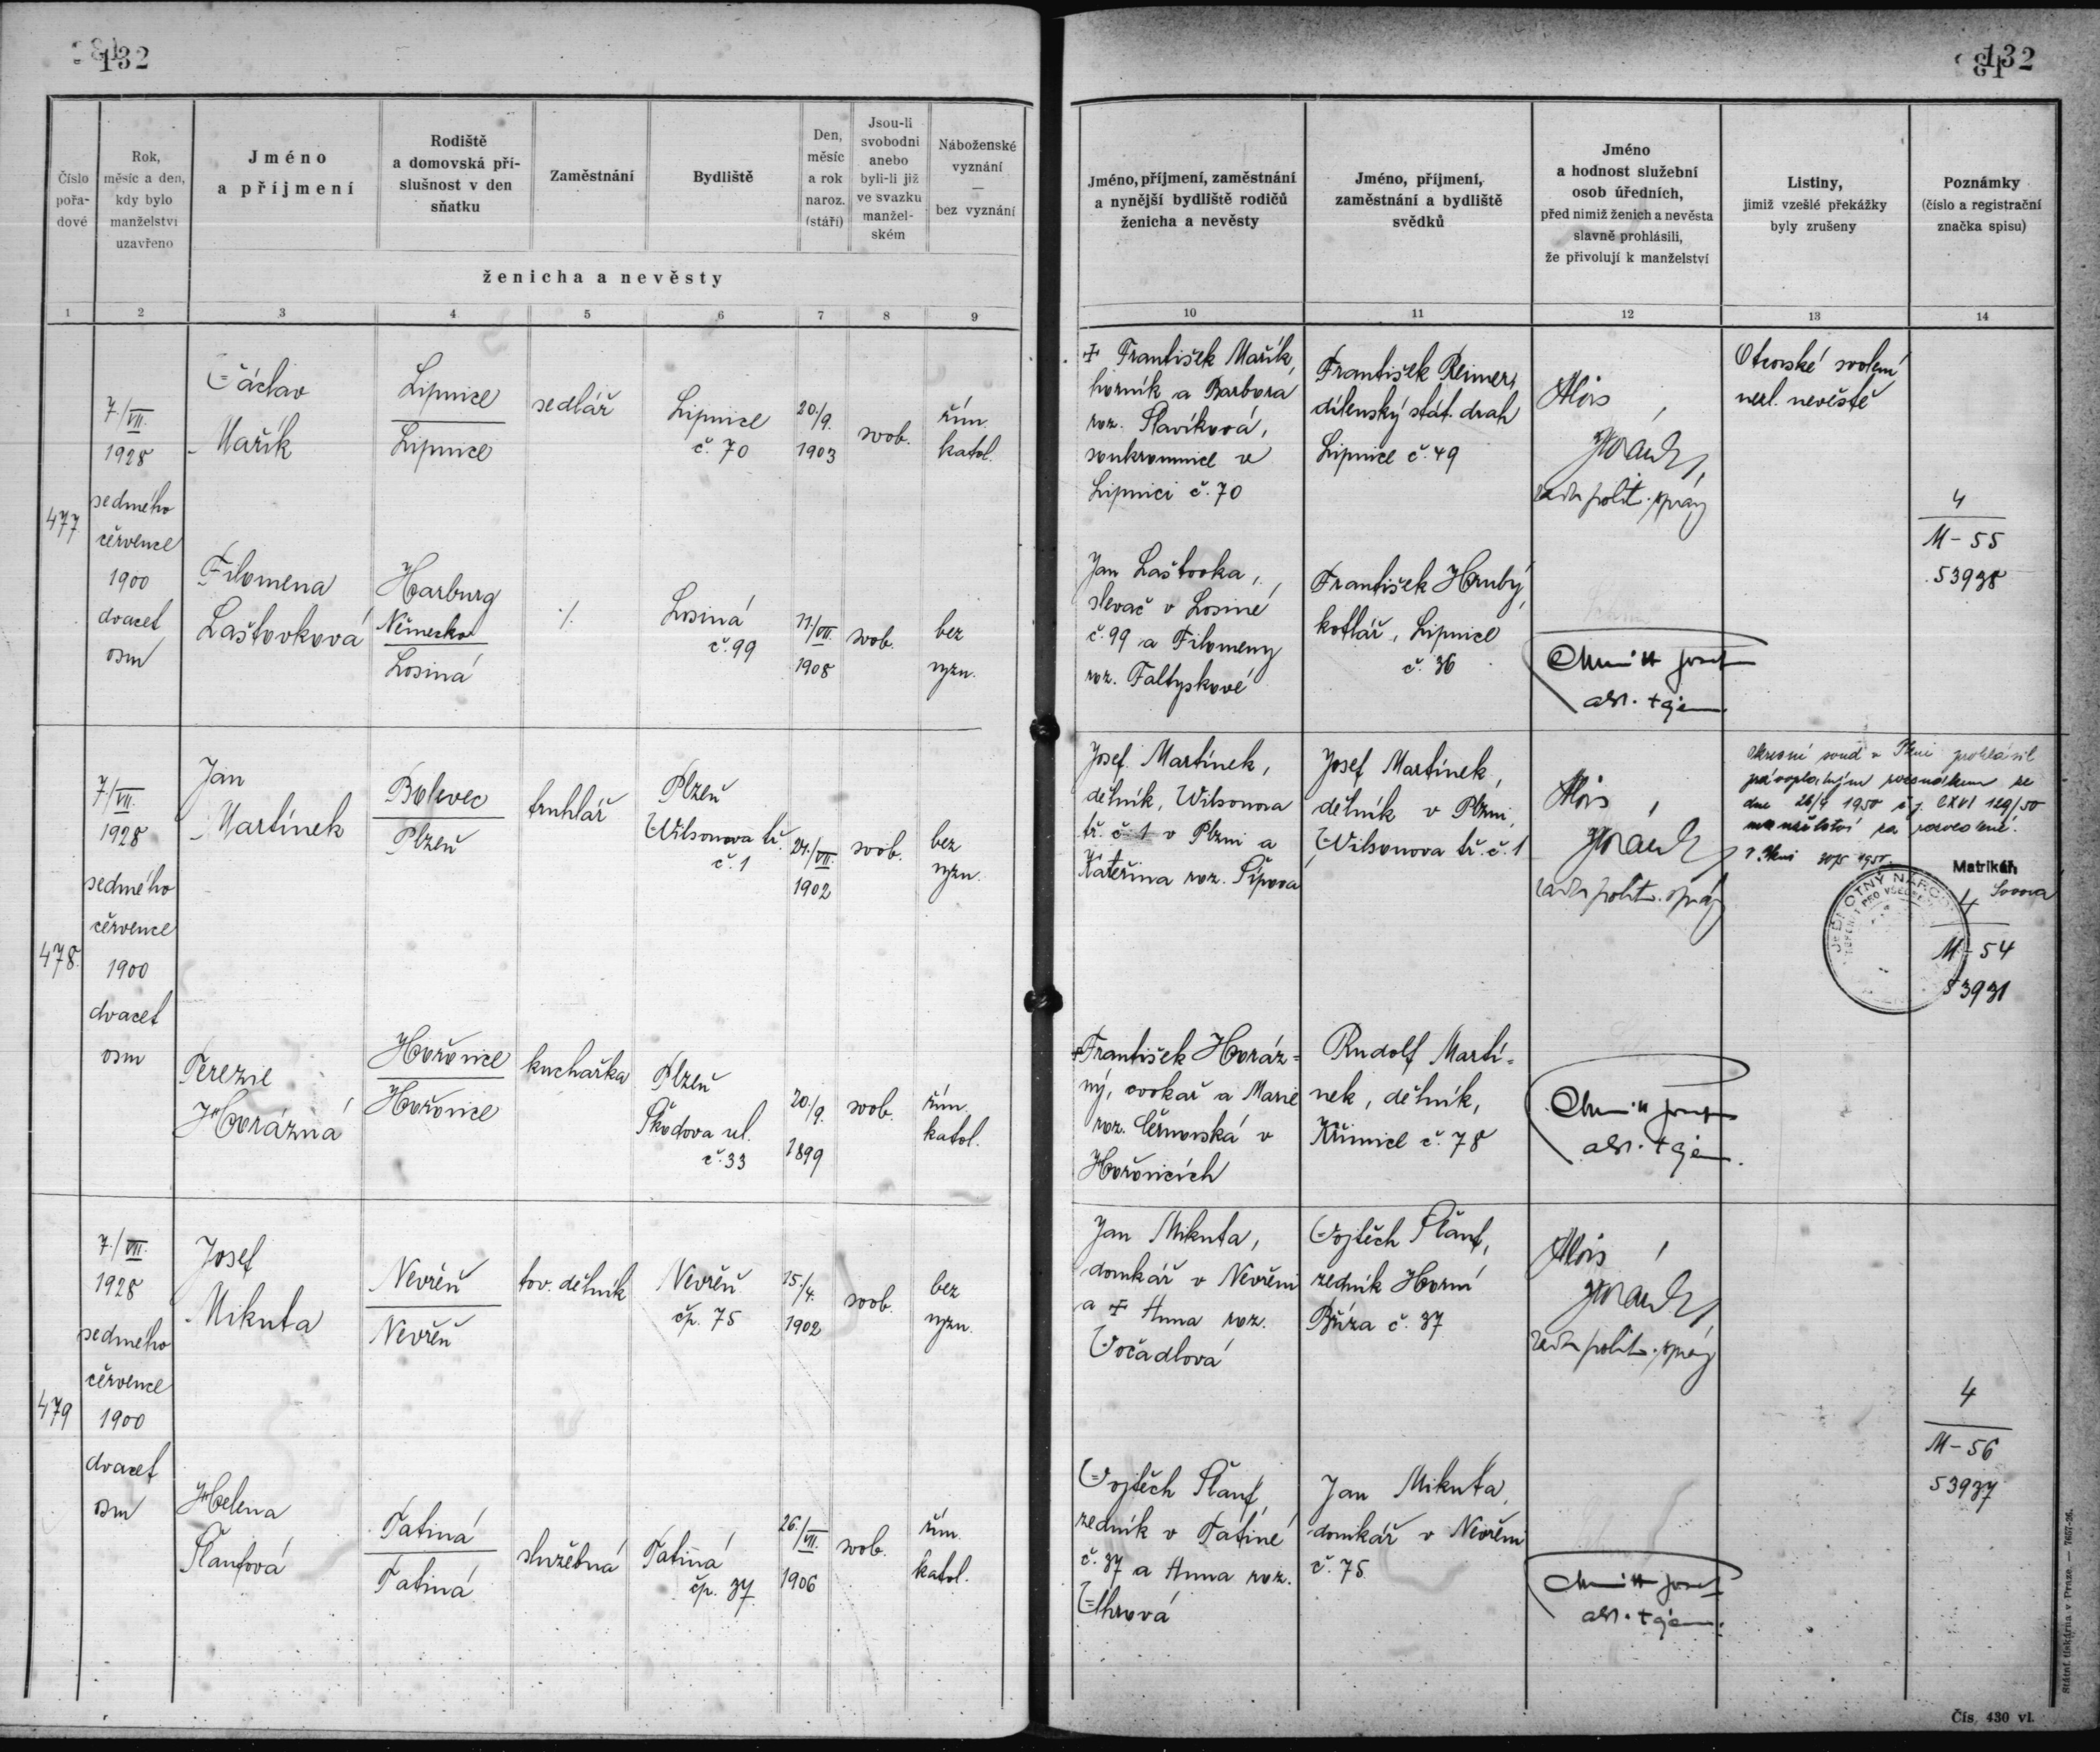 132
132
Číslo pořa-dové
Rok, měsíc a den, kdy bylo manželství uzavřeno
Jméno a příjmení
Rodiště a domovská pří-slušnost v den sňatku
Zaměstnání
Bydliště
Den, měsíc a rok naroz. (stáří)
Jsou-li svobodni anebo byli-li již ve svazku manžel-ském
Náboženské vyznání — bez vyznání
ženicha a nevěsty
Jméno, příjmení, zaměstnání a nynější bydliště rodičů ženicha a nevěsty
Jméno, příjmení, zaměstnání a bydliště svědků
Jméno a hodnost služební osob úředních, před nimiž ženich a nevěsta slavně prohlásili, že přivolují k manželství
Listiny, jimiž vzešlé překážky byly zrušeny
Poznámky (číslo a registrační značka spisu)
1 2 3 4 5 6 7 8 9 10 11 12 13 14
477
7./VII.
1928
sedmého
července
1900
dvacet
osm
Václav
Mařík
Lipnice
Lipnice
sedlář
Lipnice
č. 70
20./9.
1903
svob.
řím.
katol.
Filomena
Laštovková
Harburg
Německo
Losiná
./.
Losiná
č. 99
11/VII.
1908
svob.
bez
vyzn.
+ František Mařík,
horník a Barbora
roz. Slavíková,
soukromnice v
Lipnici č. 70
František Reiner,
dílenský stát. drah
Lipnice č. 49
Alois
rada polit. správy
Otcovské svolení
nezl. nevěstě
4
M-55
53938
Jan Laštovka,
slevač v Losiné
č. 99 a Filomeny
roz. Faltyskové
František Hrubý,
kotlář, Lipnice
č. 36
Josef
478.
7/VII.
1928
sedmého
července
1900
dvacet
osm
Jan
Martínek
Bolevec
Plzeň
truhlář
Plzeň
Wilsonova tř.
č. 1
24./VII.
1902
svob.
bez
vyzn.
Terezie
Hvorázná
Hořovice
Hořovice
kuchařka
Plzeň
Škodova ul.
č. 33
20./9.
1899
svob.
řím.
katol.
Josef Martínek,
dělník, Wilsonova
tř. č. 1 v Plzni a
Kateřina roz. Šípova
Josef Martínek,
dělník v Plzni,
Wilsonova tř. č. 1
Alois
rada polit. správy
Okresní soud v Plzni prohlásil
právoplatným rozsudkem ze
dne 26/4 1950 č.j. CXVI 129/50
manželství za rozvedené.
V Plzni
Matrikář:
4
M-54
53931
+František Hvoráz=
ný, cvokař a Marie
roz. Černovská v
Hořovicích
Rudolf Martí=
nek, dělník,
Křimice č. 78
479
7./VII.
1928
sedmého
července
1900
dvacet
osm
Josef
Mikuta
Nevřeň
Nevřeň
tov. dělník
Nevřeň
čp. 75
15./4.
1902
svob.
bez
vyzn.
Helena
Šlaufová
Tatiná
Tatiná
služebná
Tatiná
čp. 37
26./VII.
1906
svob.
řím.
katol.
Jan Mikuta,
domkář v Nevřeni
a + Anna roz.
Vočadlová
Vojtěch Šlauf,
zedník Horní
Bříza č. 37
Alois
rada polit. správy
4
M-56
53937
Vojtěch Šlauf,
zedník v Tatiné
č. 37 a Anna roz.
Uhrová
Jan Mikuta,
domkář v Nevřeni
č. 75
Josef
Státní tiskárna v Praze. — 7657-26.
Čís. 430 vl.